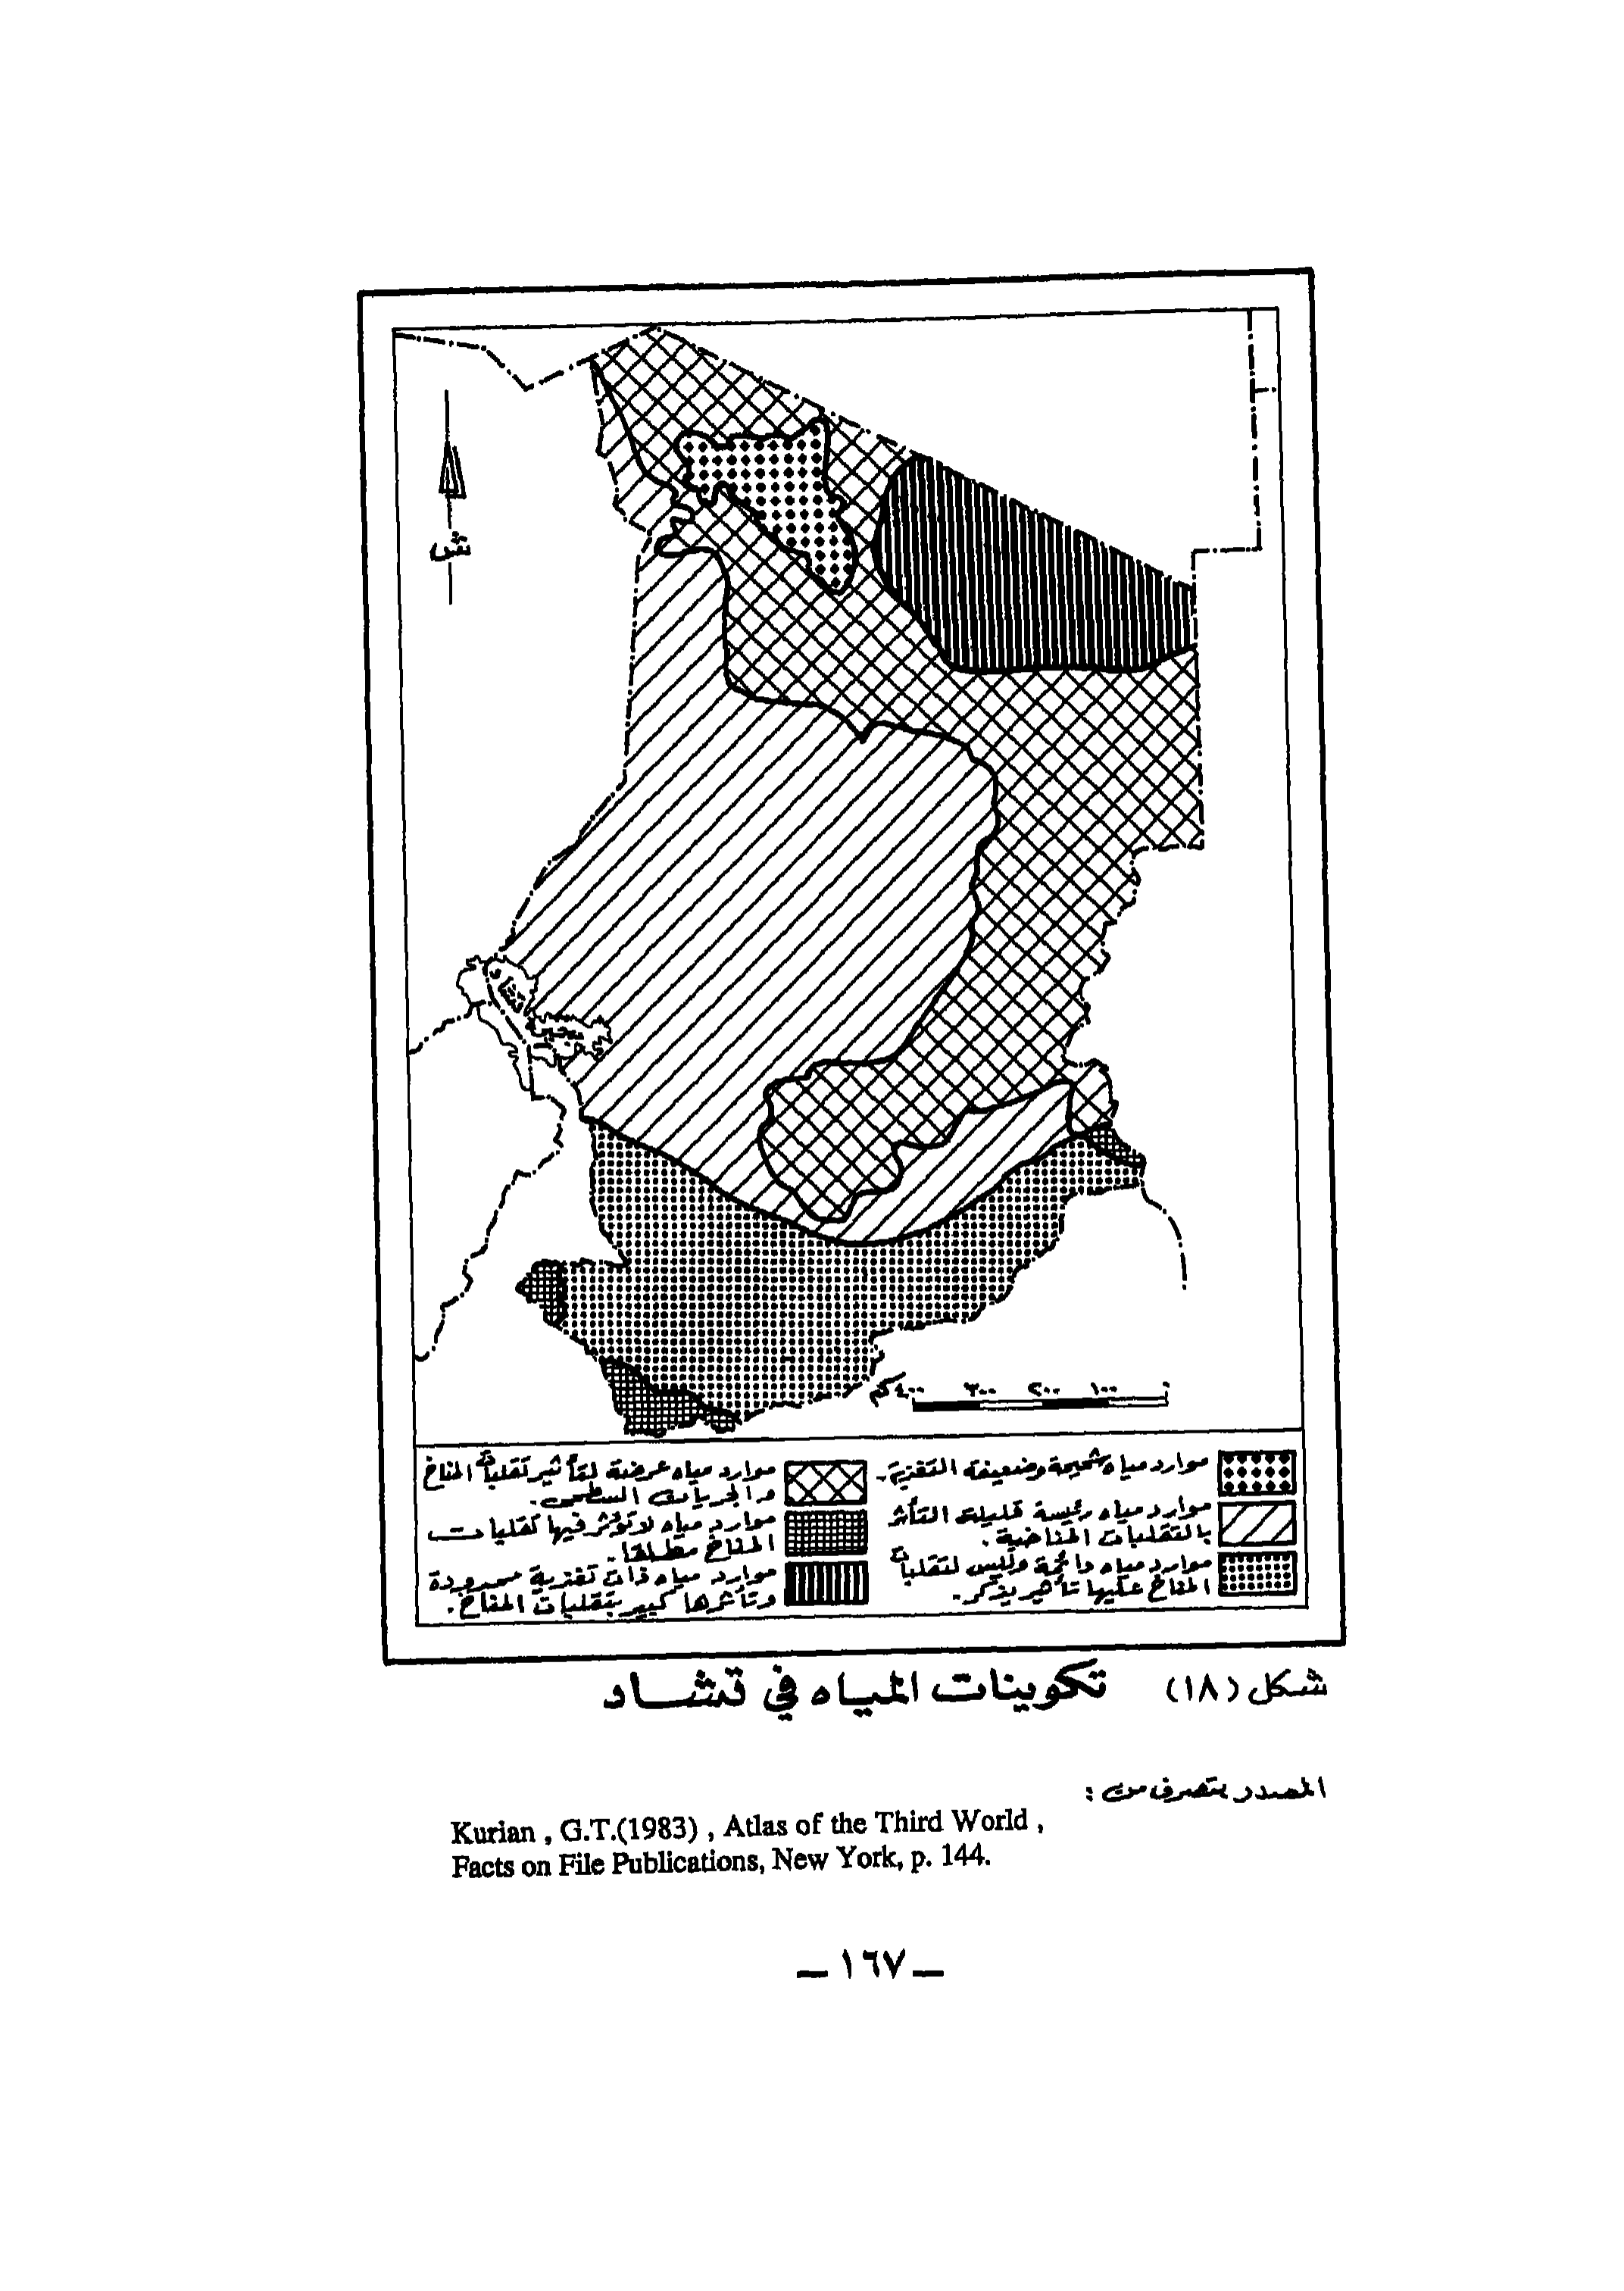 ش
بحيرة تشاد
٤٠٠كم ٣٠٠ ٢٠٠ ١٠٠ ٠
موارد مياه شحيحة وضعيفة التغذية.
موارد مياه رئيسة قليلة التأثر
بالتقلبات المناخية.
موارد مياه دائمة وليس لتقلبات
المناخ عليها تأثير يذكر.
موارد مياه عرضة لتأثير تقلبات المناخ
والجريان السطحي.
موارد مياه لا تؤثر فيها تقلبات
المناخ مطلقا.
موارد مياه ذات تغذية محدودة
وتأثرها كبير بتقلبات المناخ.
شكل (١٨) تكوينات المياه في تشاد
المصدر بتصرف من :
Kurian , G.T.(1983) , Atlas of the Third World ,
Facts on File Publications, New York, p. 144.
– ١٦٧ –